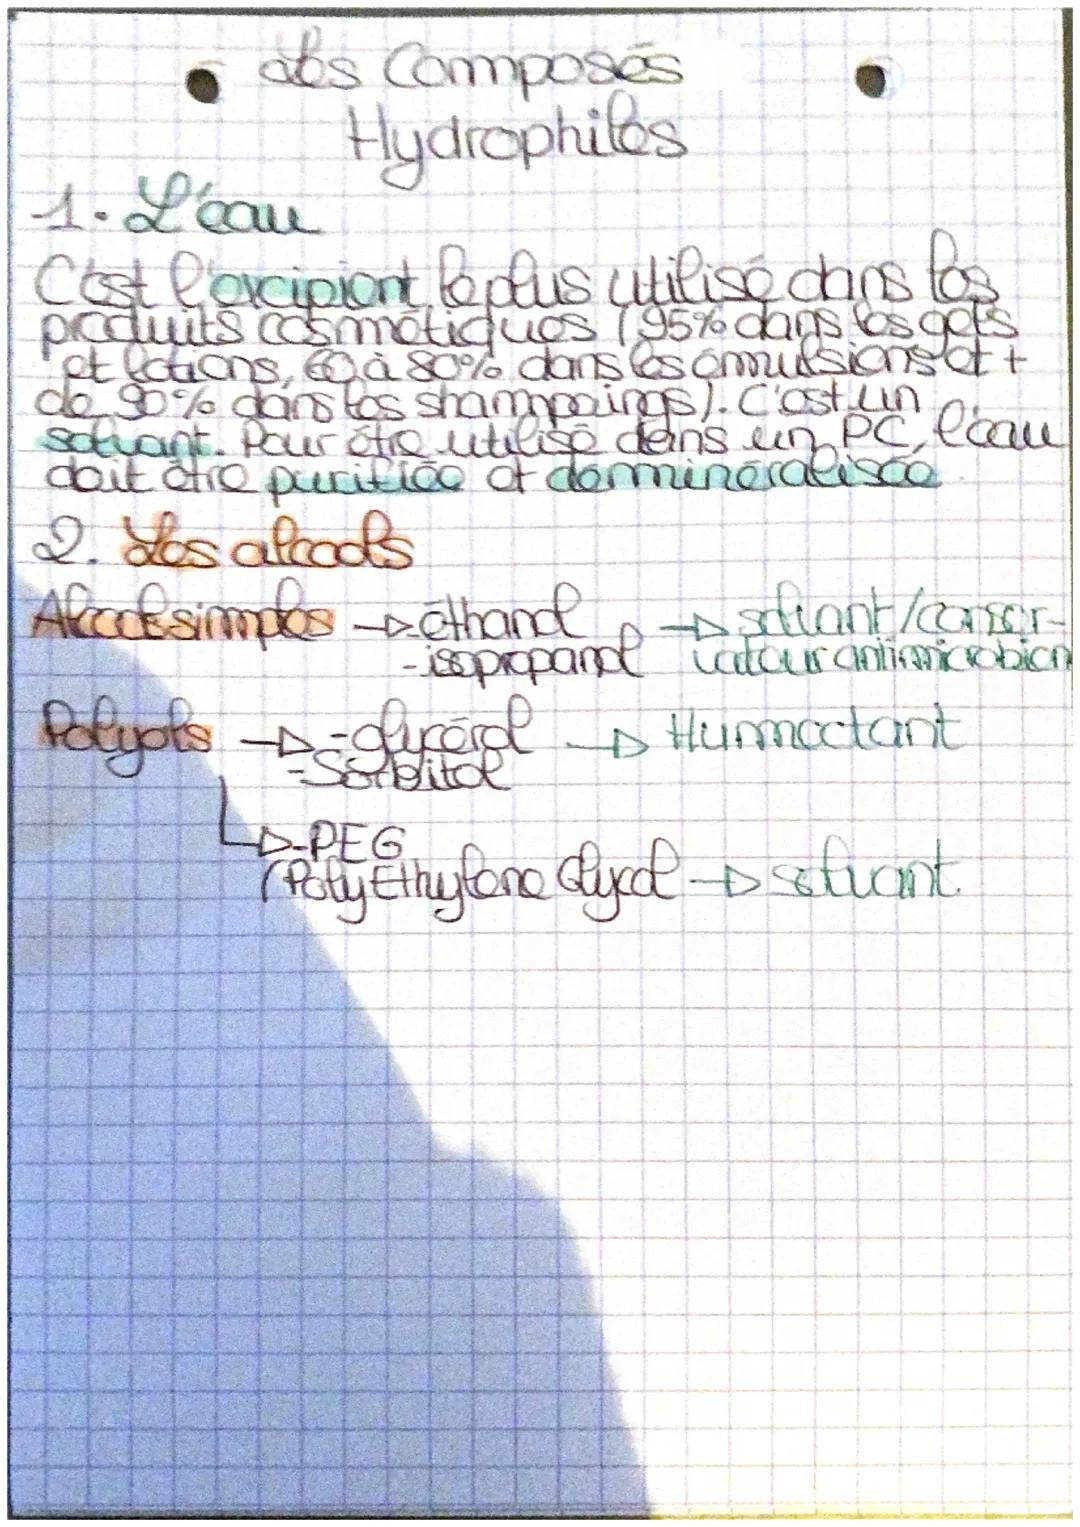 Les Composés
Hydrophiles
1. L'eau
C'est l'excipient le plus utilisé dans les
produits cosmétiques (95% dans les gels
et lotions, 60 à 80% dans les émmulsions et +
de 90% dans les shampoings). C'est un
solvant. Pour être utilisé dans un PC, l'eau
doit être purifiée et derminéralisée
2. Les alcools
Alcools simples → - éthanol → solvant/conser-
- isopropanol vateur antimicrobien
Polyols → - glycérol → Humectant
- Sorbitol
→ - PEG
(PolyEthylene Glycol → solvant.